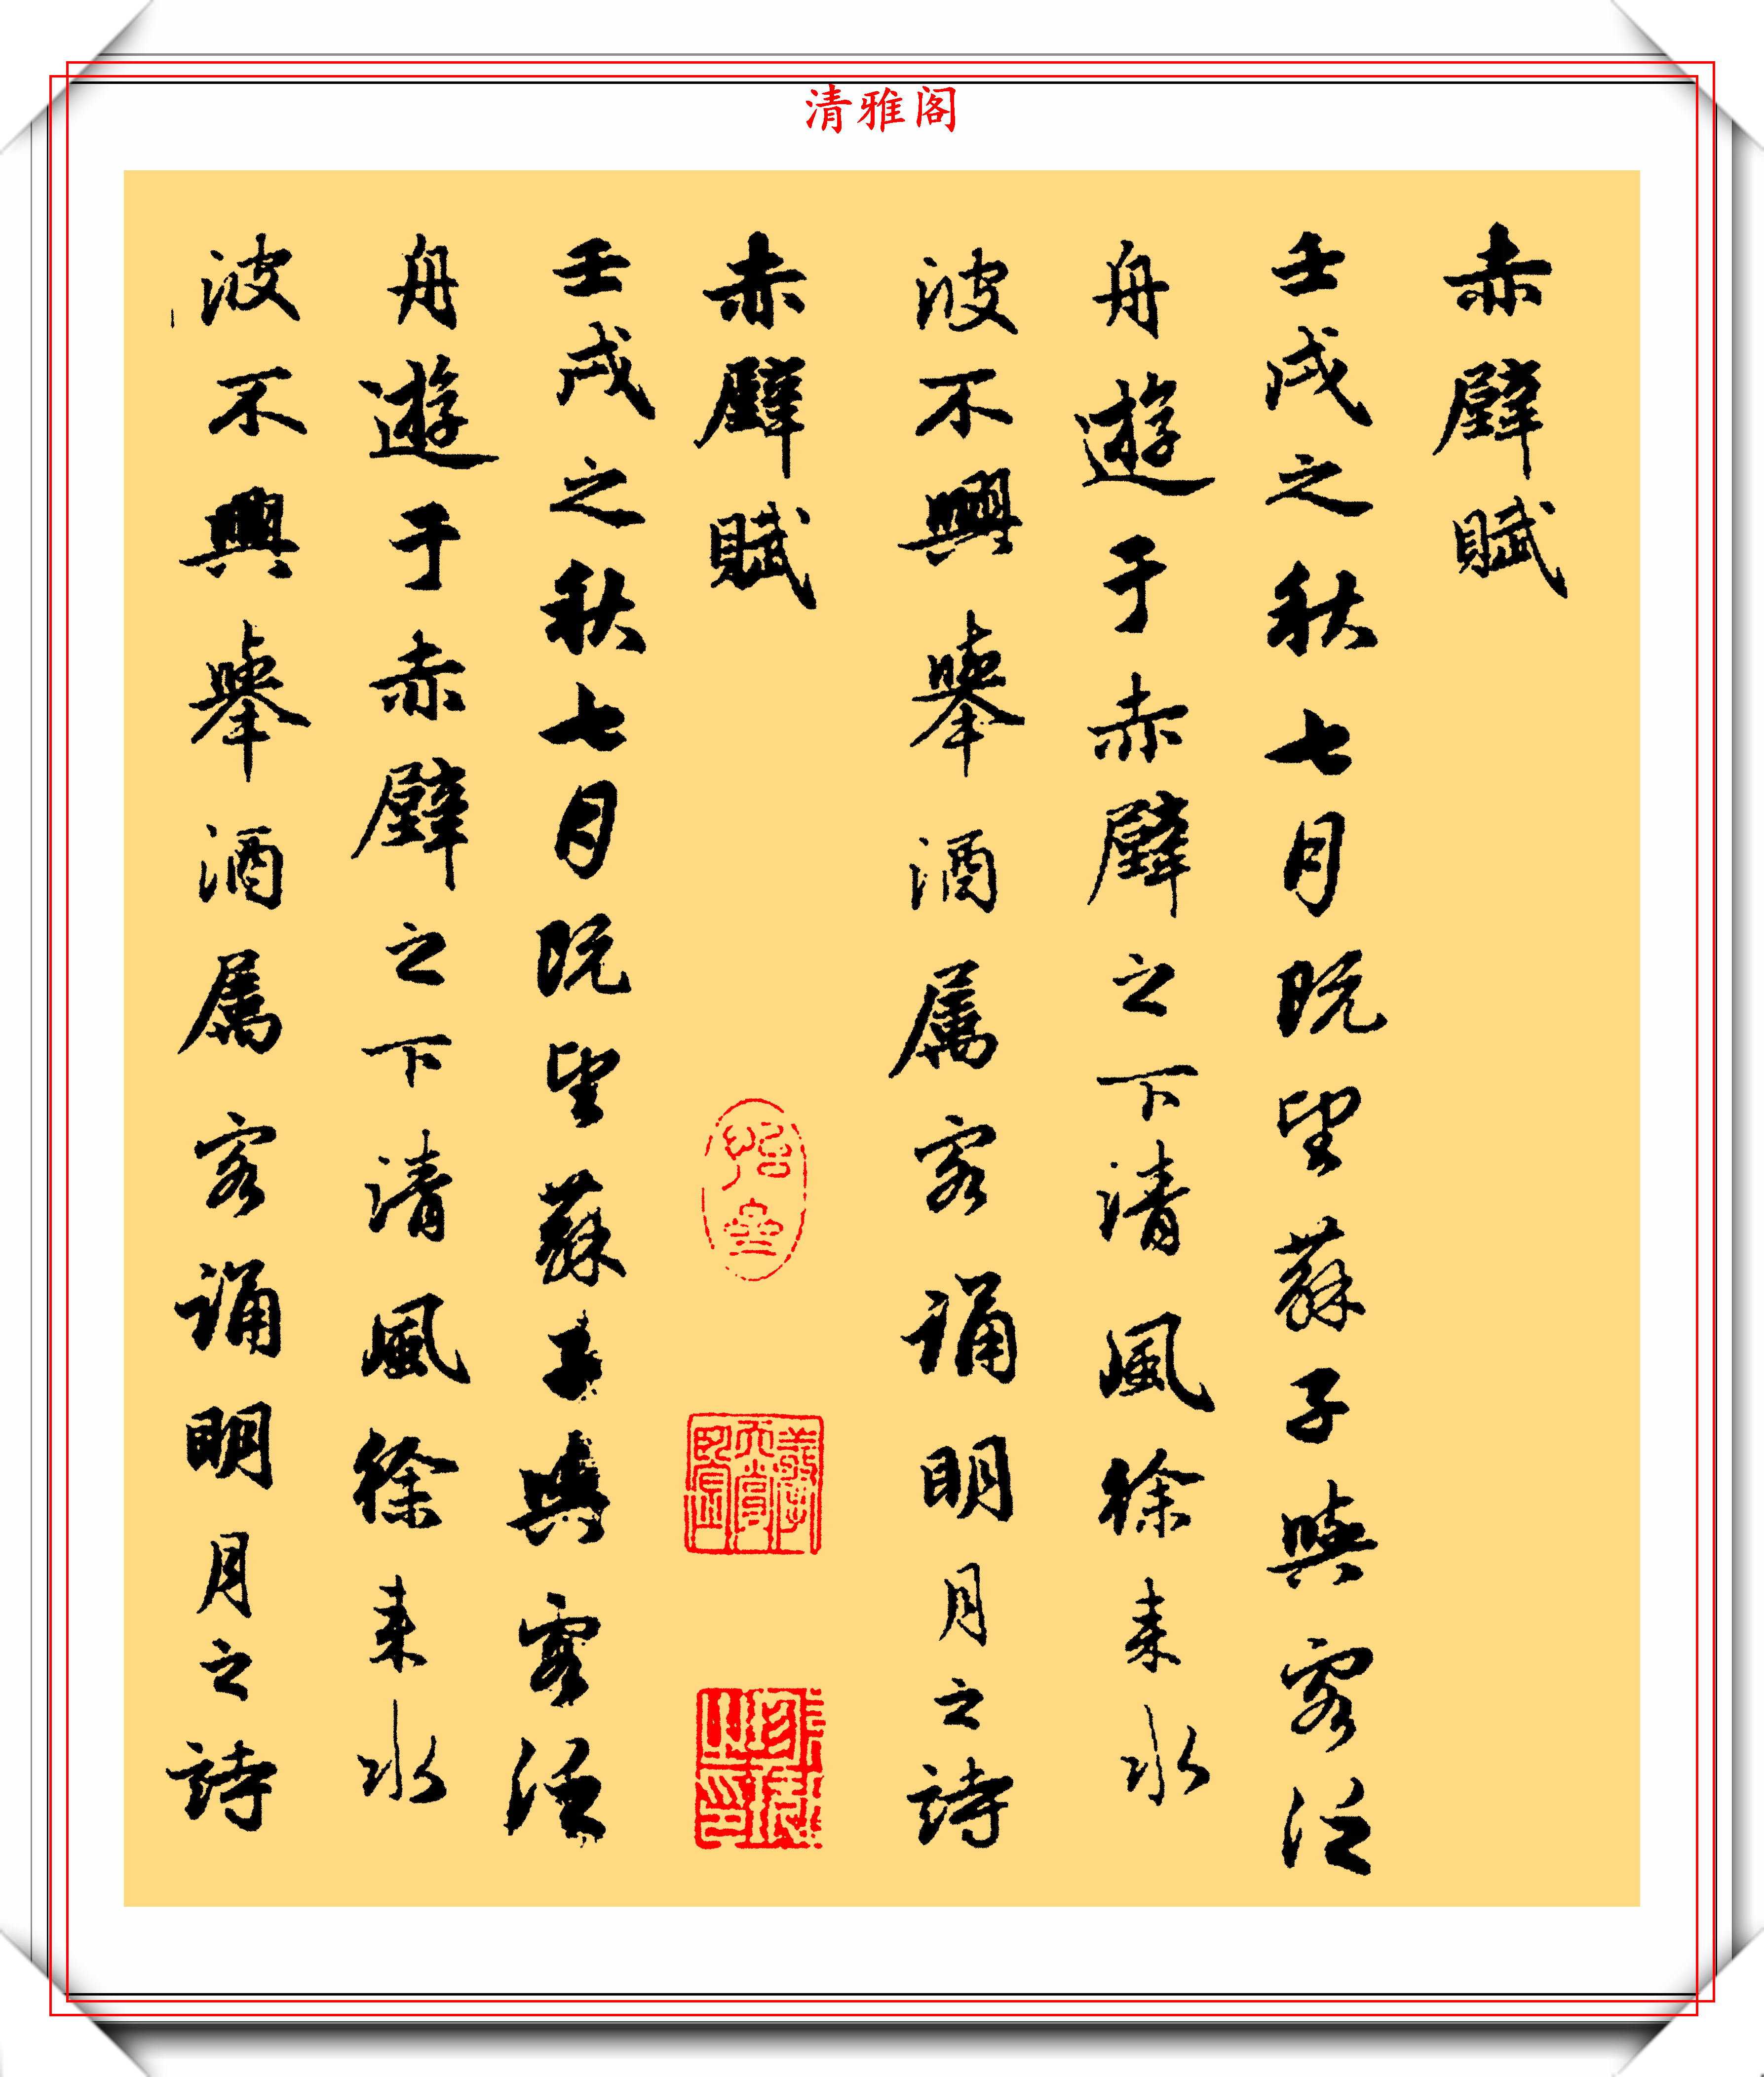 清雅阁
赤壁賦
壬戌之秋七月既望蘇子與客泛
舟遊于赤壁之下清風徐来水
波不興舉酒属客誦明月之詩
赤壁賦
壬戌之秋七月既望蘇子與客泛
舟遊于赤壁之下清風徐来水
波不興舉酒属客誦明月之詩